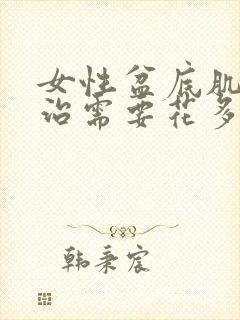 女性盆底肌
治需要花多
韩秉宸